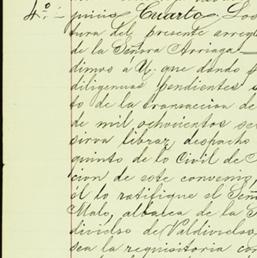 4º juicio Cuarto. Los
tura del presente arreg
de la Señora Arriaga
dimos á U. que dando p
diligencias pendientes
to de la transaccion de
de mil ochocientos se
sirva librar despacho
quinto de lo Civil de
cion de este convenio,
él lo ratifique el Señ
Malo, albacea de la T
divieso de Valdivielso
sea la requisitoria con